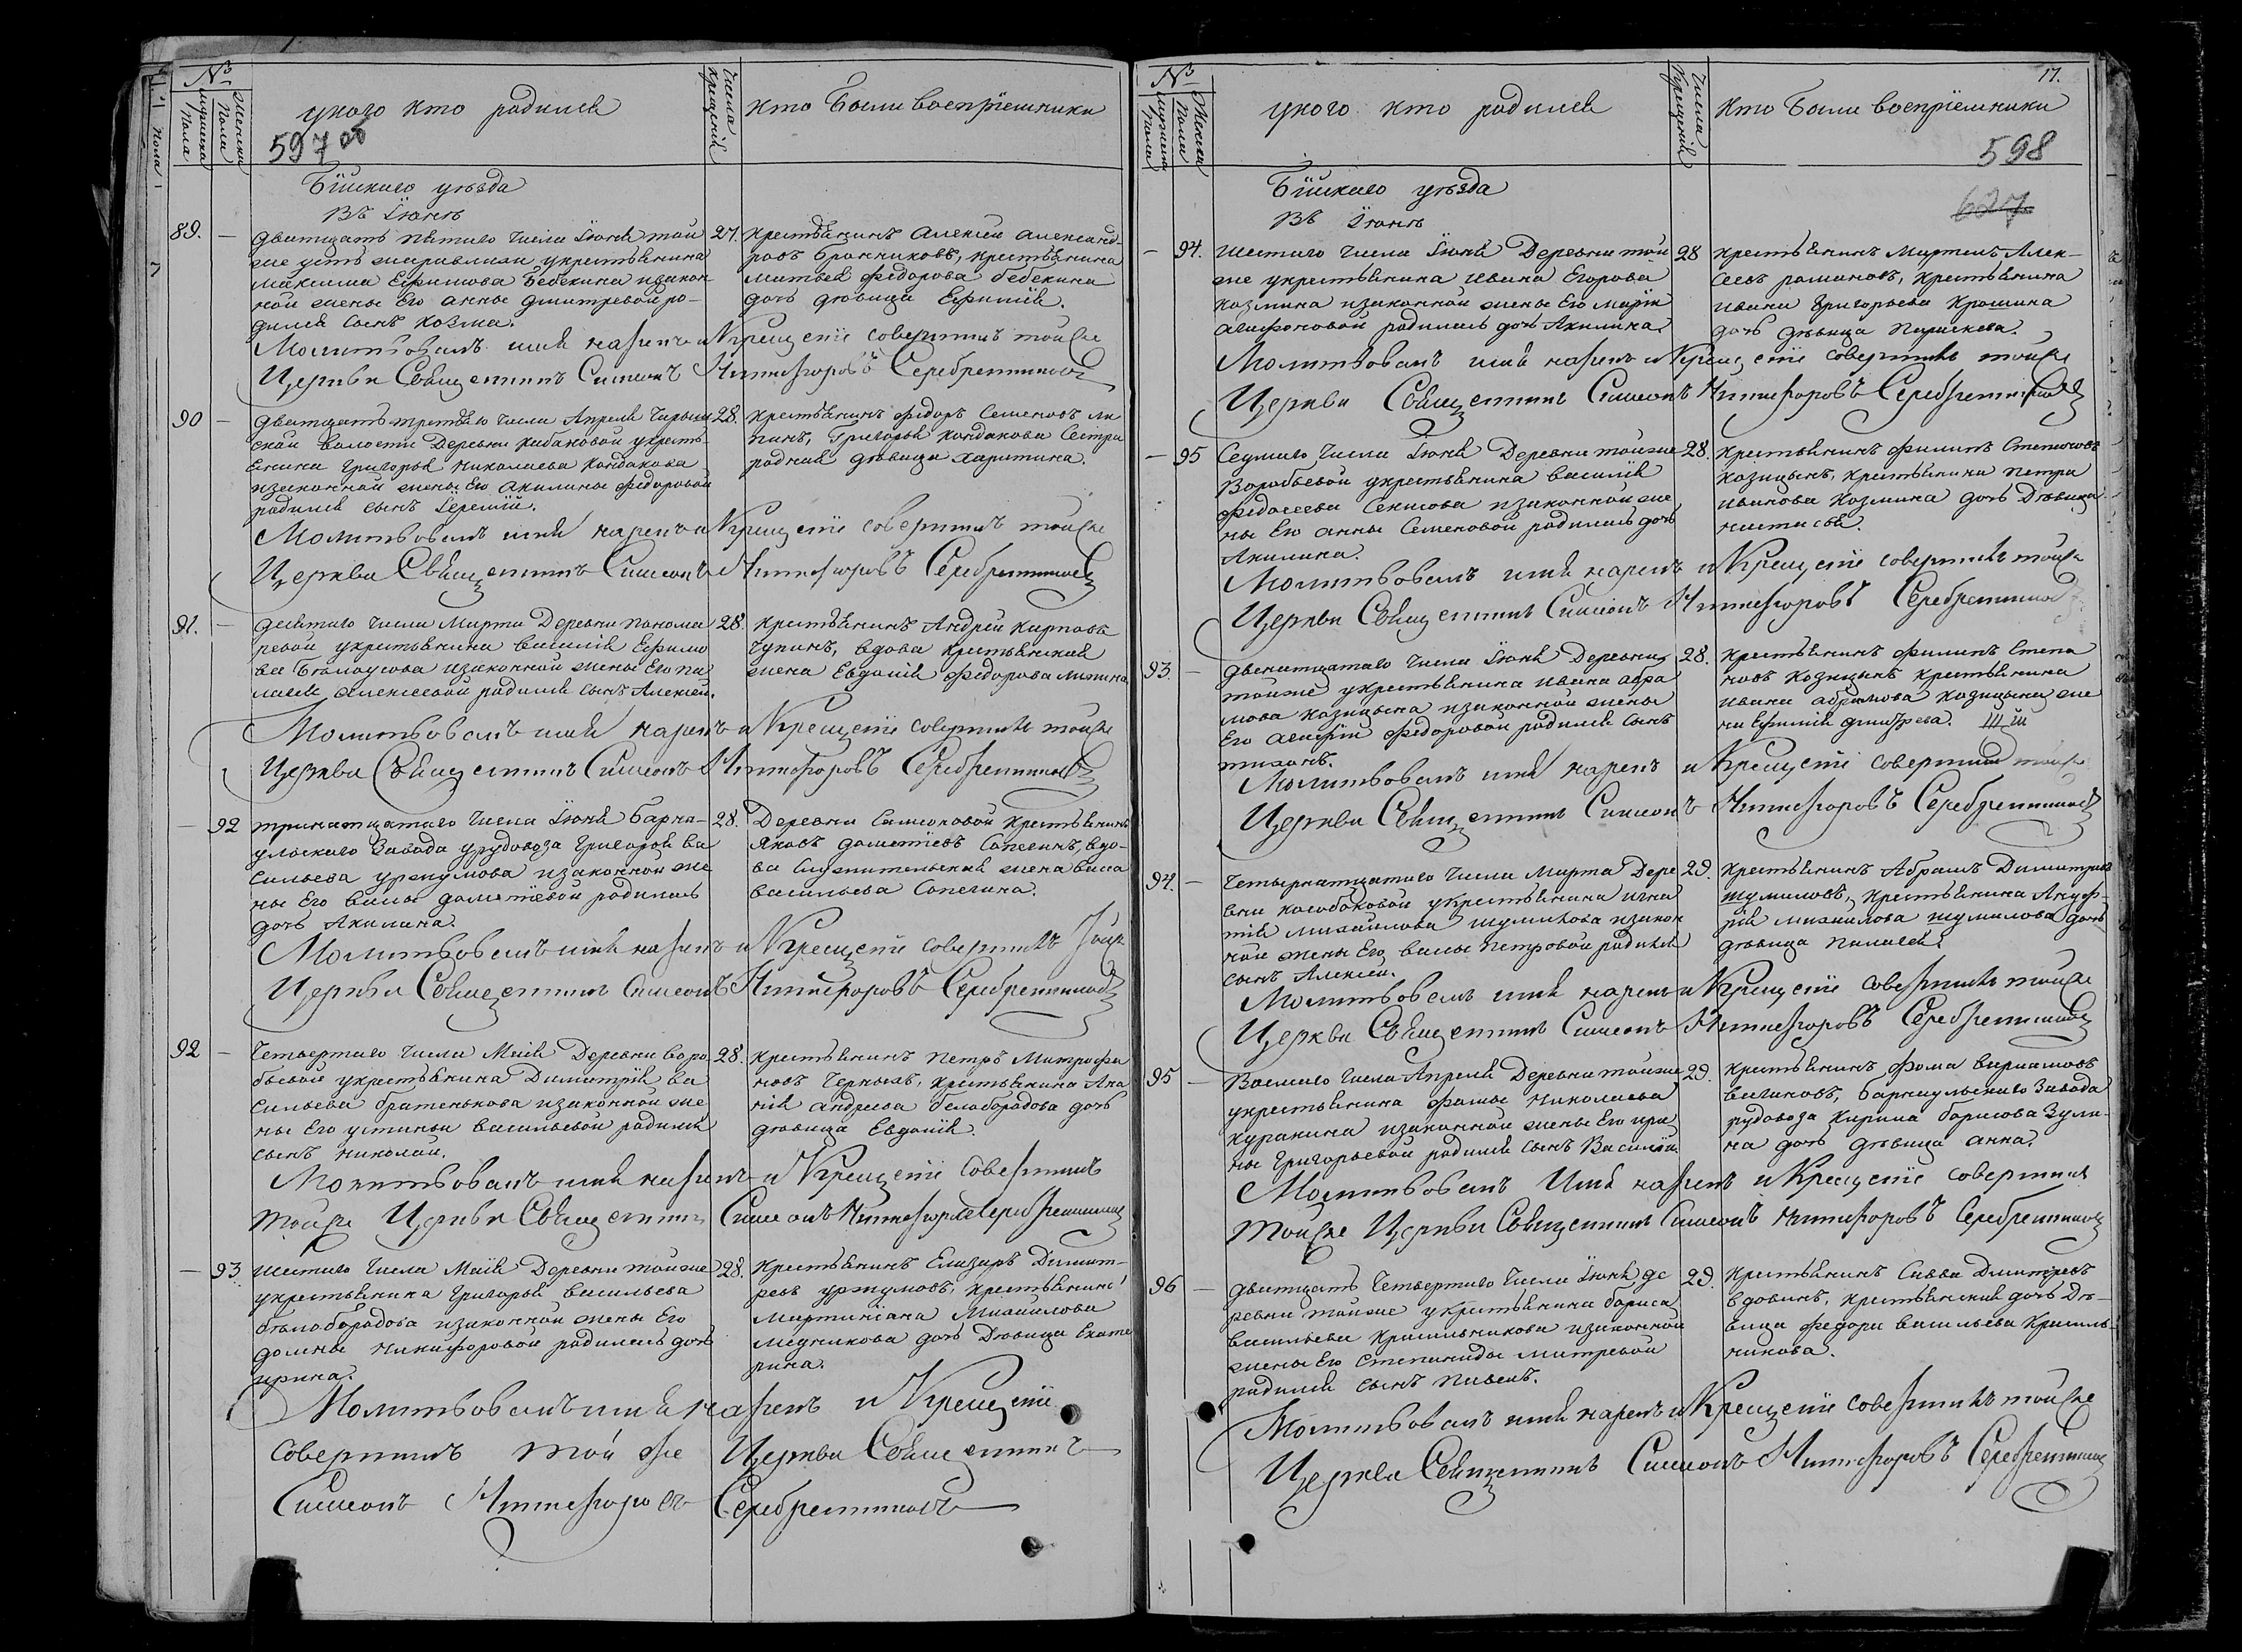 №
мужеска пола
женска пола
у кого кто родился
Числа крещенiй
кто были воспрiемники
597 об
Бiйскаго уѣзда
Въ Iюнѣ
89. —
дватцать пятаго числа Iюня той
же усть журавлихи укрестьянина
Максима Ефимова Бебекина изакон
ной жены Его анны дмитревой ро-
дился сынъ козма.
27.
крестьянинъ алексей александ-
ровъ Бранниковъ, крестьянина
матвея федорова бебекина
дочь дѣвица Ефимiя.
Молитвовалъ имя нарекъ и Крещенiе совершилъ тойже
Церкви Священникъ Симеонъ Никифоровъ Серебренниковъ
90 —
дватцать третьяго числа Апреля
ской волости Деревни кабановой укресть-
енина григорья николаева кондакова
изаконной жены Его акилины федоровой
родился сынъ Iеремiй.
28.
крестьянинъ федоръ Семеновъ ля
пинъ, Григорья кондакова Сестра
родная дѣвица харитина.
Молитвовалъ имя нарекъ и Крещенiе совершилъ тойже
Церкви Священникъ Симеонъ Никифоровъ Серебренниковъ
91. —
десятаго числа Марта Деревни понома
ревой укрестьянина василiя Ефимо
ва Бѣлоусова изаконной жены Его пе
лагеи алексеевой родился сынъ Алексей.
28.
крестьянинъ Андрей карповъ
чупинъ, вдова крестьянская
жена Евдокiя федорова
Молитвовалъ имя нарекъ и Крещенiе совершилъ тойже
Церкви Священникъ Симеонъ Никифоровъ Серебренниковъ
— 92
тринатцатаго числа Iюня Барна-
ульскаго Завода урудовоза григорья ва
сильева уржумова изаконной же
ны Его васы дометiевой родилась
дочь Акилина.
28.
Деревни Самсоновой крестьянинъ
Яковъ дометiевъ Сапегинъ, вдо-
ва служительская жена васа
васильева Сапегина.
Молитвовалъ имя нарекъ и Крещенiе совершилъ тойже
Церкви Священникъ Симеонъ Никифоровъ Серебренниковъ
92 —
Четвертаго числа Маiя Деревни воро
бьевой укрестьянина Димитрiя ва
сильева братенькова изаконной же
ны Его устиньи васильевой родился
сынъ николай.
28.
крестьянинъ петръ Митрофа
новъ Черныхъ, крестьянина Ана
нiя андреева белобородова дочь
дѣвица Евдокiя.
Молитвовалъ имя нарекъ и Крещенiе Совершилъ
тойже Церкви Священникъ Симеонъ Никифоровъ Серебренниковъ
— 93
шестаго числа Маiя Деревни тойже
укрестьянина григорья васильева
бѣлобородова изаконной жены Его
домны никифоровой родилась дочь
ирина.
28.
крестьянинъ Елизаръ Димит-
ревъ уржумовъ, крестьянина
мартинiана Михайлова
медникова дочь Дѣвица Екате
рина.
Молитвовалъ имя нарекъ и Крещенiе
совершилъ той же Церкви Священникъ
Симеонъ Никифоровъ Серебренниковъ
№
мужеска пола
женска пола
у кого кто родился
Числа крещенiй
кто были воспрiемники
17.
598
627
Бiйскаго уѣзда
Въ Iюнѣ
— 94.
шестаго числа Iюня Деревни той
же укрестьянина ивана Егорова
козмина изаконной жены Его Марiи
агафоновой родилась дочь Акилина.
28
крестьянинъ Мартемъ Алек-
сеевъ романовъ, крестьянина
ивана григорьева
дочь дѣвица параскева.
Молитвовалъ имя нарекъ и Крещенiе совершилъ тойже
Церкви Священникъ Симеонъ Никифоровъ Серебренниковъ
— 95
Седмаго числа Iюня Деревни тойже
Воробьевой укрестьянина василiя
федосеева Секисова изаконной же
ны Его анны Семеновой родилась дочь
Акилина.
28.
крестьянинъ филипъ Степановъ
козицынъ, крестьянина петра
иванова козмина дочь Дѣвица
настасья.
Молитвовалъ имя нарекъ и Крещенiе совершилъ тойже
Церкви Священникъ Симеонъ Никифоровъ Серебренниковъ
93. —
двенатцатаго числа Iюня Деревни
тойже укрестьянина ивана абра
мова козицына изаконной жены
Его федоровой родился сынъ
тихонъ.
28.
крестьянинъ филипъ Степа
новъ козицынъ крестьянина
ивана абрамова козицына же
на Ефимiя дмитрева.
Молитвовалъ имя нарекъ и Крещенiе совершилъ тойже
Церкви Священникъ Симеонъ Никифоровъ Серебренниковъ
94. —
Четырнатцатаго числа Марта Дере
вни кособоковой укрестьянина игна
тiя михайлова шумилова изакон
ной жены Его васы петровой родился
сынъ Алексей.
29.
крестьянинъ Абрамъ Димитриев
шумиловъ, крестьянина Ануф-
рiя михайлова шумилова дочь
дѣвица пелагея.
Молитвовалъ имя нарекъ и Крещенiе совершилъ тойже
Церкви Священникъ Симеонъ Никифоровъ Серебренниковъ
95 —
Восмаго числа Апреля Деревни тойже
укрестьянина фомы николаева
куракина изаконной жены Его ири
ны григорьевой родился сынъ Василiй.
29.
крестьянинъ фома варламовъ
вагановъ, барнаульскаго Завода
рудовоза кирила борисова Зули-
на дочь дѣвица анна.
Молитвовалъ Имя нарекъ и Крещенiе совершилъ
тойже Церкви Священникъ Симеонъ Никифоровъ Серебренниковъ
96 —
дватцать Четвертаго числа Iюня де
ревни тойже укрестьянина бориса
васильева красильникова изаконной
жены Его степаниды митревой
родился сынъ павелъ.
29.
крестьянинъ Савва Дмитревъ
вдовинъ, крестьянская дочь Дѣ-
вица федора васильева красиль-
никова.
Молитвовалъ имя нарекъ и Крещенiе совершилъ тойже
Церкви Священникъ Симеонъ Никифоровъ Серебренниковъ